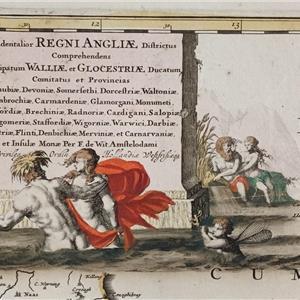 12 13
dentalior REGNI ANGLIÆ Districtus
Comprehendens
ipatum WALLIÆ, et GLOCESTRIÆ Ducatum
Comitatus et Provincias
nubiæ, Devoniæ, Somersethi, Dorcestriæ, Waltoniæ,
mbrochiæ, Carmardeniæ, Glamorgani, Monumeti
fordiæ, Brechiniæ, Radnoriæ, Cardigani, Salopiæ
tgomeriæ, Staffordiæ, Wigorniæ, Warwici, Darbiæ
triæ, Flinti, Denbochiæ, Merviniæ, et Carnarvaniæ,
et Insulæ Monæ Per F. de Wit Amstelodami
Ordin Hollandiæ
CUM